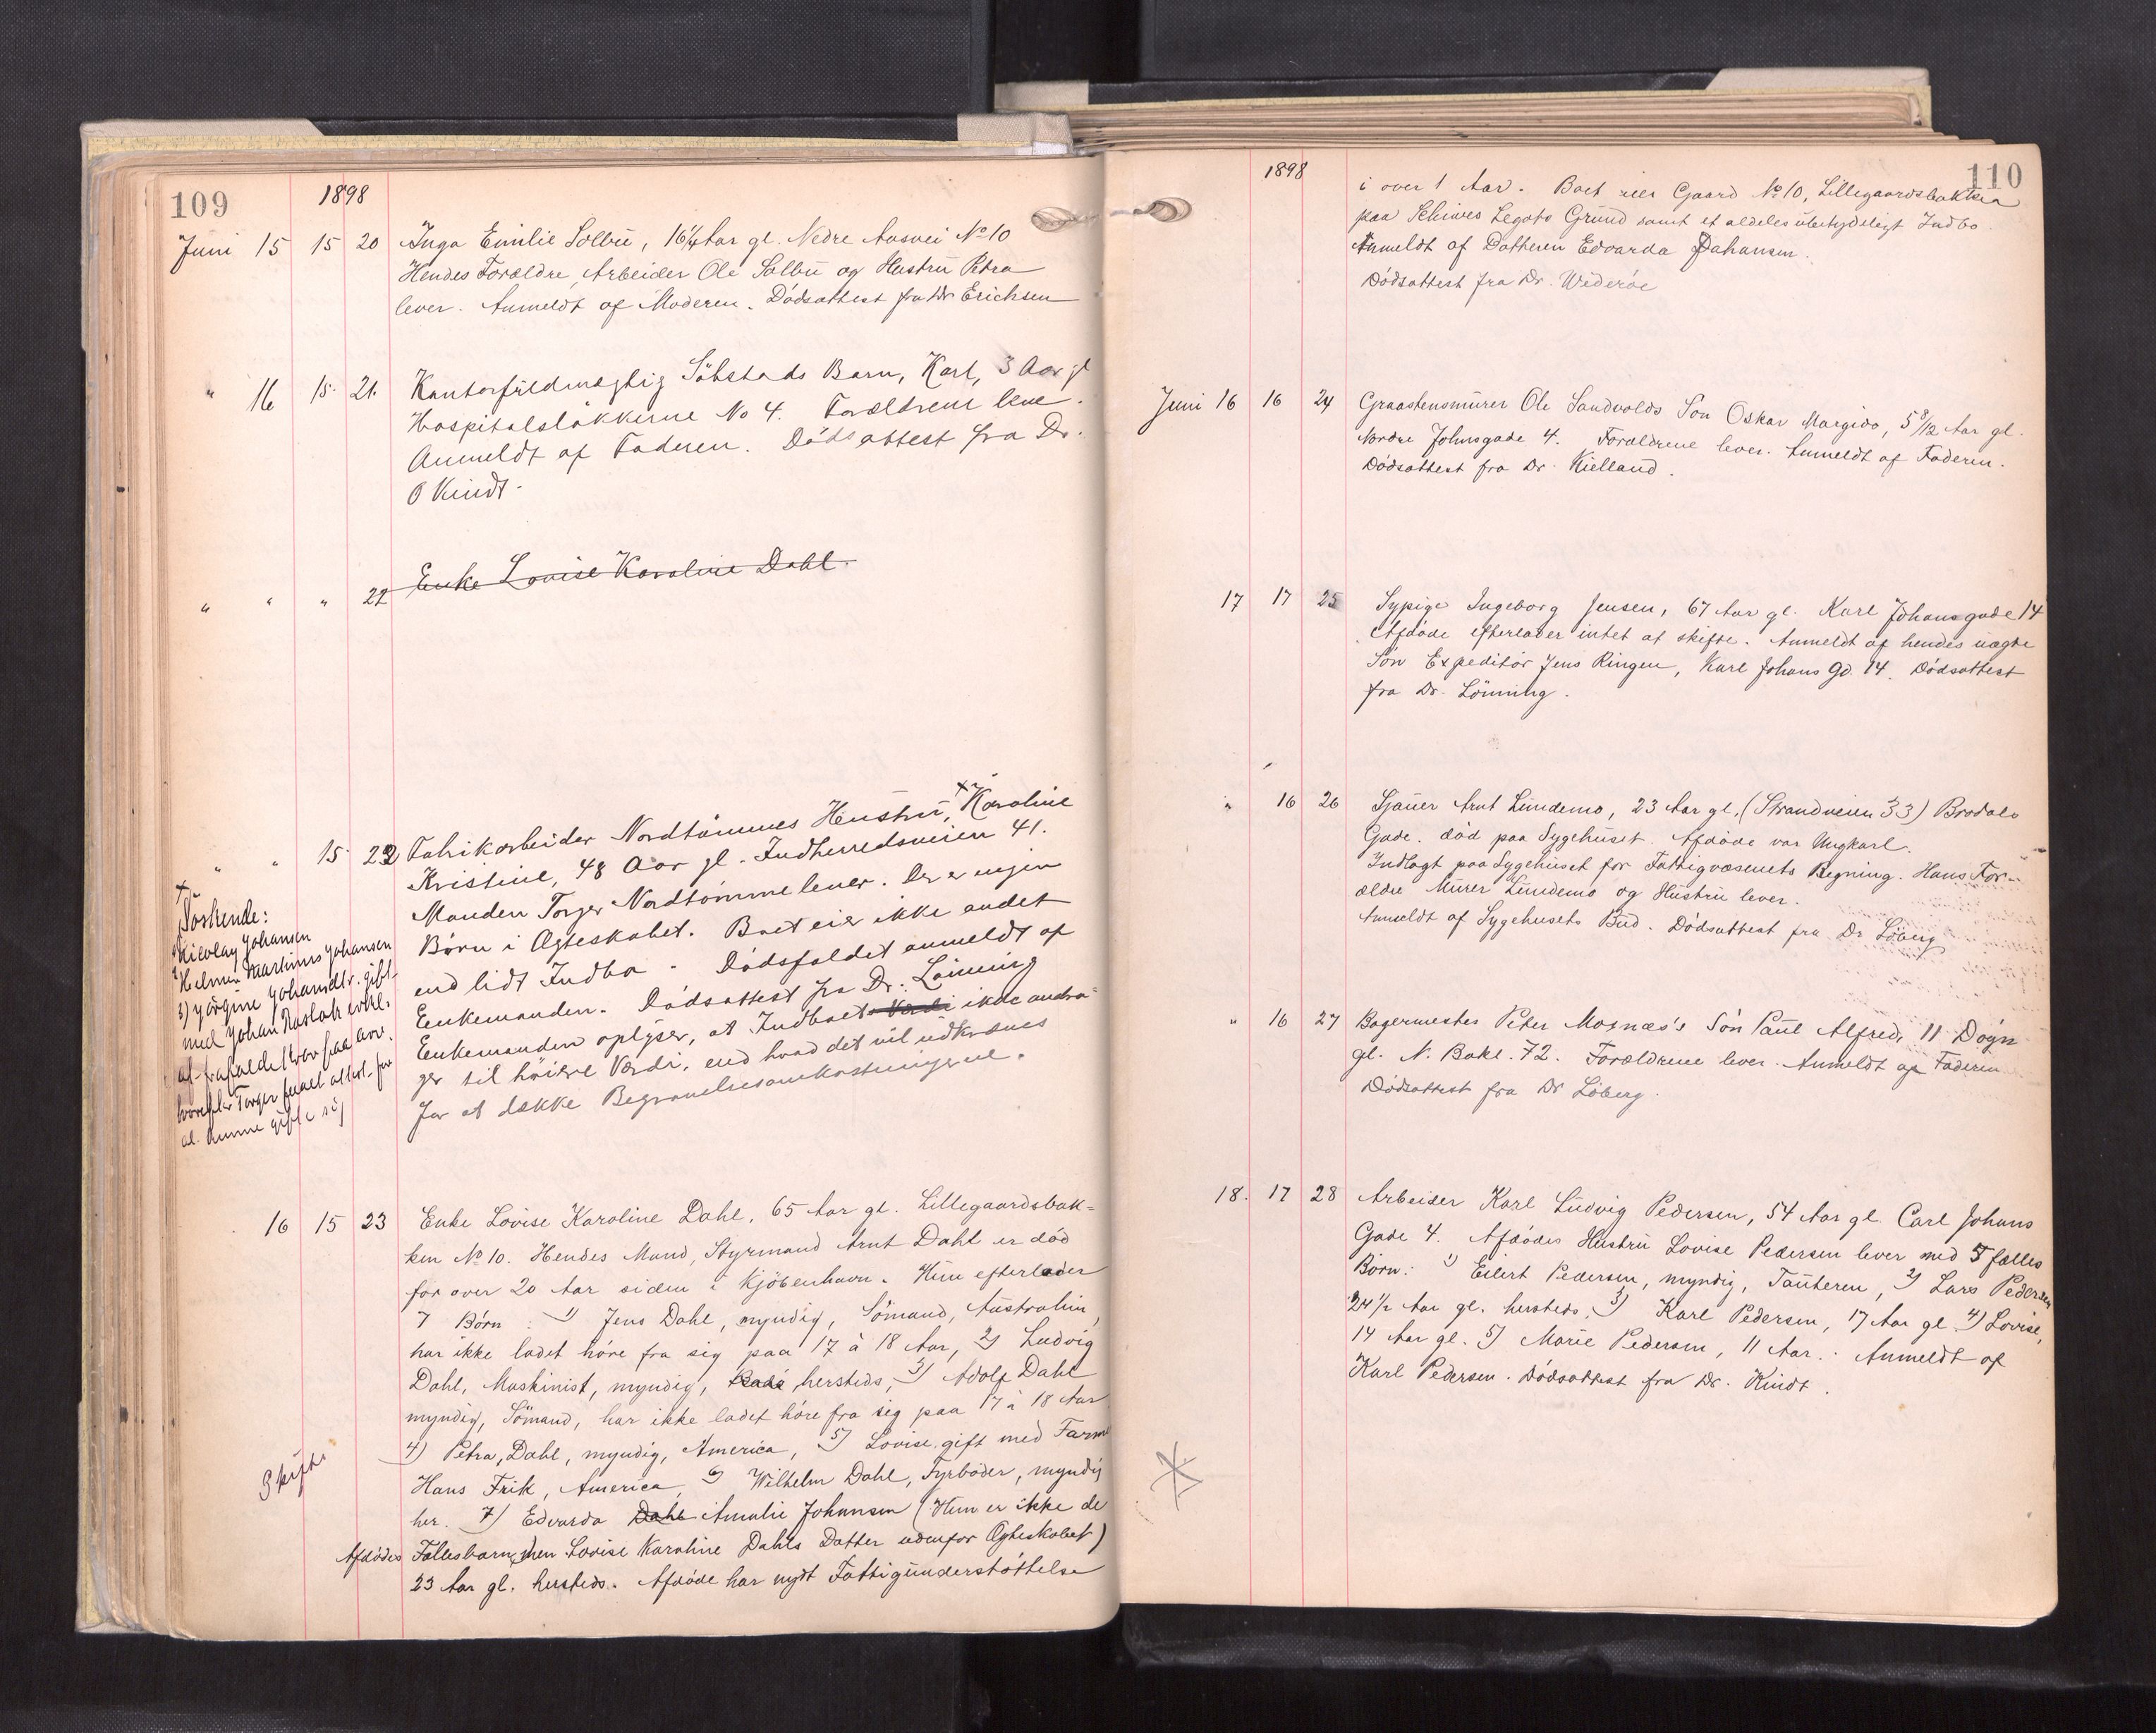 109
1898
Juni 15 15 20 Inga Emilie Solbu, 16 1/4 Aar gl. Nedre Aasvei No 10
Hendes Forældre, Arbeider Ole Solbu og Hustru Petra
lever. Anmeldt af Moderen. Dödsattest fra Dr Erichsen
" 16 15. 21. Kontorfuldmægtig Söbstads Barn, Karl, 3 Aar gl
Hospitalslökkerne No 4. Forældrene leve.
Anmeldt af Faderen. Dödsattest fra Dr.
O Kindt.
" " " 22 Enke Lovise Karoline Dahl.
" " 15 22 Fabrikarbeider Nordtömmes Hustru, Karoline
Kristine, 48 Aar gl. Indherredsveien 41.
Manden Torger Nordtömme lever. Der er ingen
Börn i Ægteskabet. Boet eier ikke andet
end lidt Indbo. Dödsfaldet anmeldt af
Enkemanden. Dödsattest fra Dr. Lönning
Enkemanden oplyser, at Indboets Værdi ikke andra-
ger til höiere Værdi, end hvad det vil udkræves
for at dække Begravelsesomkostningerne.
Söskende:
Nicolay Johansen
Helmer Martinus Johansen
3) Jörgine Johansdtr. gift
med Johan
16 15 23 Enke Lovise Karoline Dahl, 65 Aar gl. Lillegaardsbak-
ken No 10. Hendes Mand, Styrmand Arnt Dahl er död
for over 20 Aar siden i Kjöbenhavn. Hun efterlader
7 Börn: 1) Jens Dahl, myndig, Sömand, Australien,
har ikke ladet höre fra sig paa 17 à 18 Aar, 2) Ludvig
Dahl, Maskinist, myndig, hersteds, 3) Adolf Dahl
myndig, Sömand, har ikke ladet höre fra sig paa 17 à 18 Aar
4) Petra, Dahl, myndig, America, 5) Lovise gift med Farmer
Skifte
Hans Frik, America, 6) Wilhelm Dahl, Fyrböder, myndig
her. 7) Edvarda Dahl Amalie Johansen (Hun er ikke de
Afdödes Fællesbarn, men Lovise Karoline Dahls Datter udenfor Ægteskabet)
23 Aar gl. hersteds. Afdöde har nydt Fattigunderstöttelse
110
1898
i over 1 Aar. Boet eier Gaard No 10, Lillegaardsbakken
paa Schives Legats Grund samt et aldeles ubetydeligt Indbo.
Anmeldt af Datteren Edvarda Johansen.
Dödsattest fra Dr. Wideröe
Juni 16 16 24 Graastensmurer Ole Sandvolds Sön Oskar Margido, 5 8/12 Aar gl.
Nordre Johnsgade 4. Forældrene lever. Anmeldt af Faderen.
Dödsattest fra Dr. Kielland.
17 17 25 Sypige Ingeborg Jensen, 67 Aar gl. Karl Johansgade 14
Afdöde efterlader intet at skifte. Anmeldt af hendes uægte
Sön Expeditör Jens Ringen, Karl Johans Gd. 14. Dödsattest
fra Dr. Lönning.
" 16 26 Sjauer Arnt Lundemo, 23 Aar gl. (Strandveien 33) Brodals
Gade. död paa Sygehuset. Afdöde var Ungkarl.
Indlagt paa Sygehuset for Fattigvæsenets Regning. Hans For-
ældre Murer Lundemo og Hustru lever.
Anmeldt af Sygehusets Bud. Dödsattest fra Dr Löberg
" 16 27 Bagermester Peter Mosnæs's Sön Paul Alfred, 11 Dögn
gl. N. Bakl. 72. Forældrene lever. Anmeldt af Faderen
Dödsattest fra Dr Löberg.
18. 17 28 Arbeider Karl Ludvig Pedersen, 54 Aar gl. Carl Johans
Gade 4. Afdödes Hustru Lovise Pedersen lever med 5 fælles
Börn: 1) Eilert Pedersen, myndig, Tautern, 2) Lars Pedersen
24 1/2 Aar gl. hersteds, 3) Karl Pedersen, 17 Aar gl 4) Lovise,
14 Aar gl. 5) Marie Pedersen, 11 Aar. Anmeldt af
Karl Pedersen. Dödsattest fra Dr. Kindt.